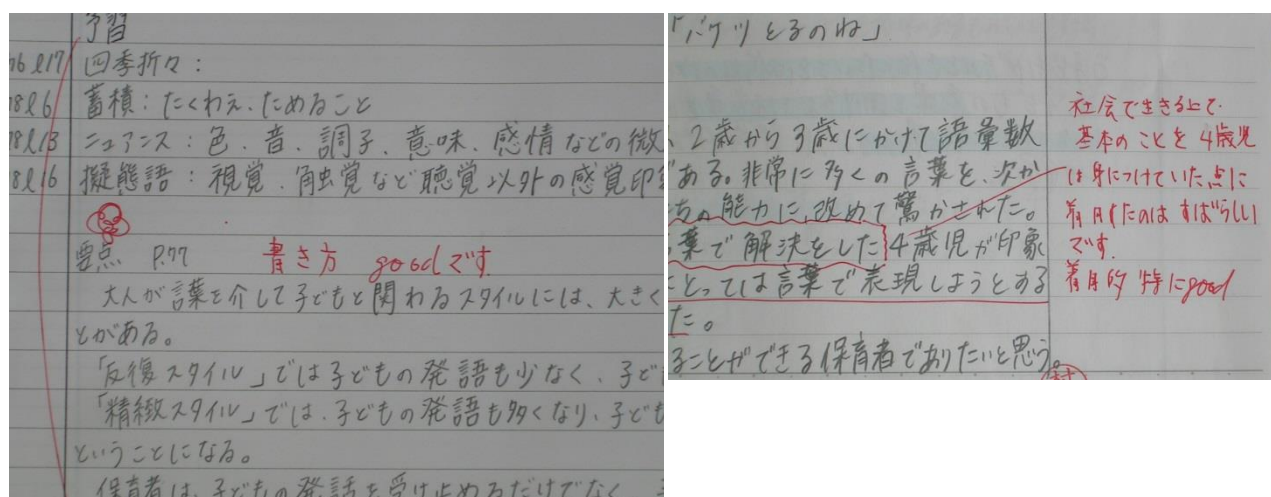 予習
76 l17 四季折々：
78 l6 蓄積：たくわえ、ためること
78 l13 ニュアンス：色、音、調子、意味、感情などの微
78 l16 擬態語：視覚、触覚など聴覚以外の感覚印
要点 P.77 書き方 goodです
大人が言葉を介して子どもと関わるスタイルには、大きく
とがある。
「反復スタイル」では子どもの発語も少なく、子ど
「精緻スタイル」では、子どもの発語も多くなり、子ども
ということになる。
保育者は、子どもの発話を受け止めるだけでなく、
「バケツとるのね」
、2歳から3歳にかけて語彙数
である。非常に多くの言葉を、次か
ちの能力に、改めて驚かされた。
葉で解決をした4歳児が印象
にとっては言葉で表現しようとする
た。
ることができる保育者でありたいと思う。
社会で生きる上で
基本のことを4歳児
は身につけていた点に
着目したのはすばらしい
です。
着目的 特にgood